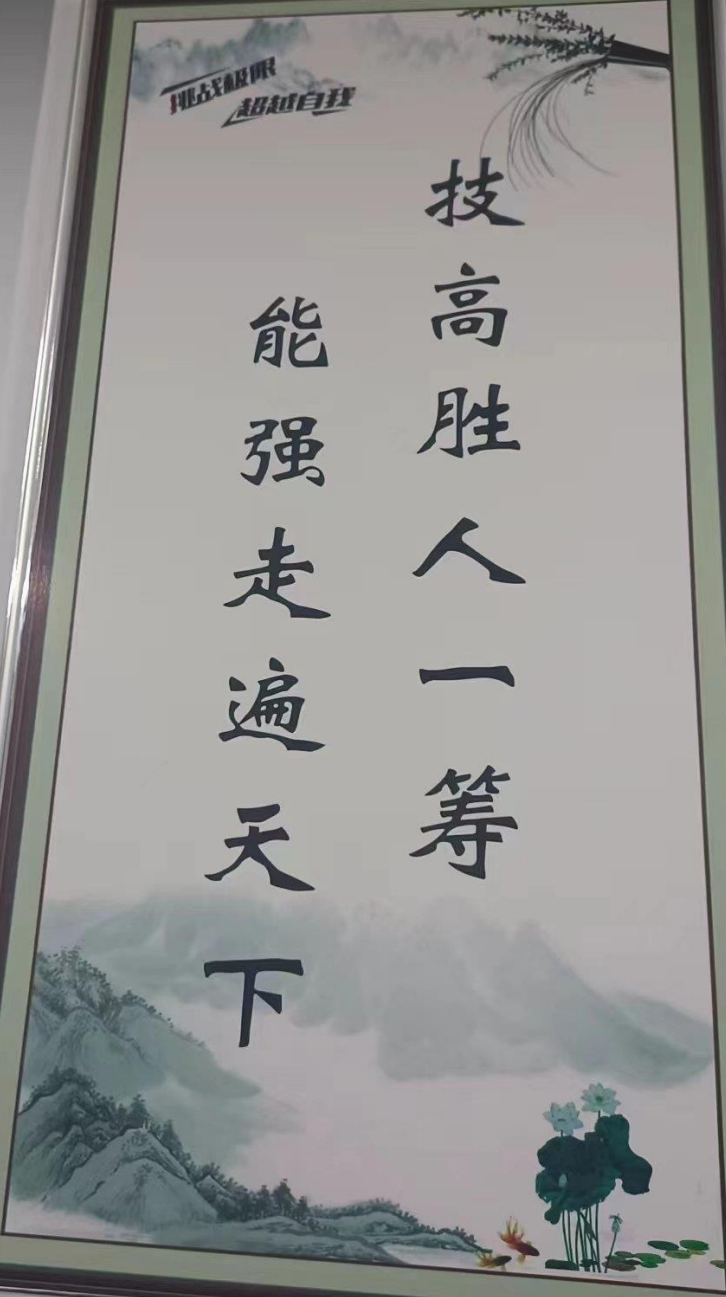 挑战极限
超越自我
技高胜人一筹
能强走遍天下